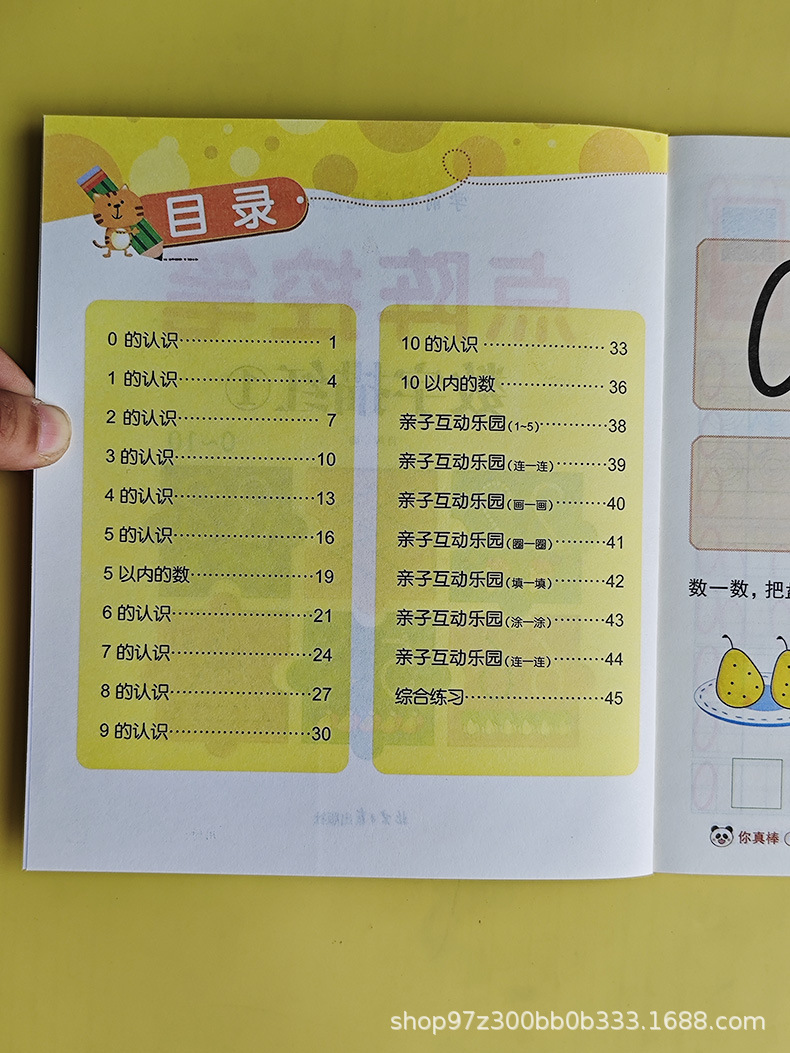 目录
0 的认识…………………… 1
1 的认识…………………… 4
2 的认识…………………… 7
3 的认识…………………… 10
4 的认识…………………… 13
5 的认识…………………… 16
5 以内的数………………… 19
6 的认识…………………… 21
7 的认识…………………… 24
8 的认识…………………… 27
9 的认识…………………… 30
10 的认识………………… 33
10 以内的数……………… 36
亲子互动乐园(1~5)………… 38
亲子互动乐园(连一连)……… 39
亲子互动乐园(画一画)……… 40
亲子互动乐园(圈一圈)……… 41
亲子互动乐园(填一填)……… 42
亲子互动乐园(涂一涂)……… 43
亲子互动乐园(连一连)……… 44
综合练习…………………… 45
0
数一数，把
你真棒
shop97z300bb0b333.1688.com